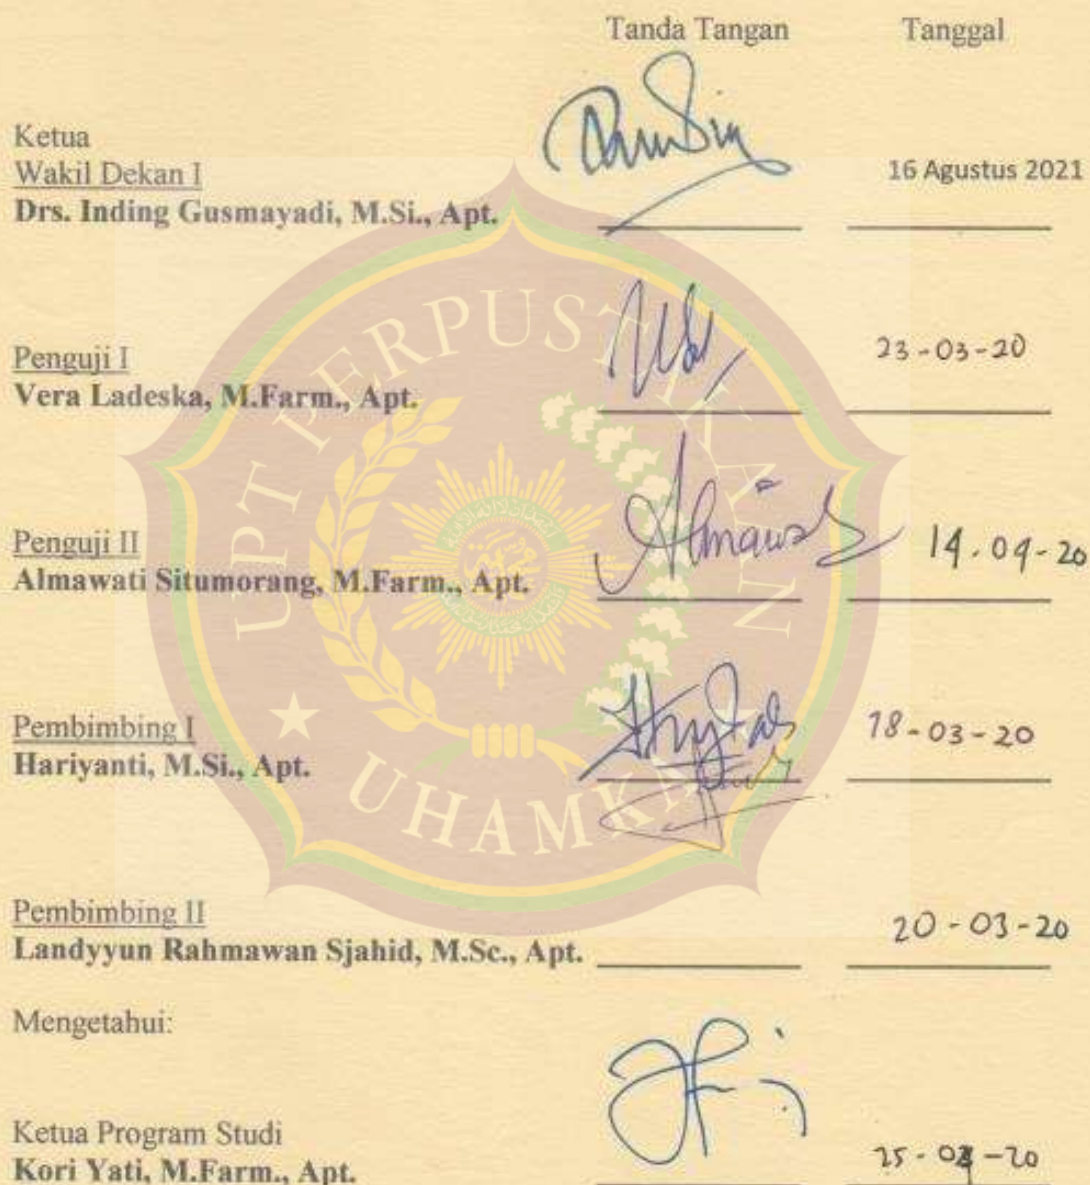 Tanda Tangan Tanggal
Ketua
Wakil Dekan I
Drs. Inding Gusmayadi, M.Si., Apt.
16 Agustus 2021
Penguji I
Vera Ladeska, M.Farm., Apt.
23-03-20
Penguji II
Almawati Situmorang, M.Farm., Apt.
Almawati
14.09-20
Pembimbing I
Hariyanti, M.Si., Apt.
18-03-20
Pembimbing II
Landyyun Rahmawan Sjahid, M.Sc., Apt.
20-03-20
Mengetahui:
Ketua Program Studi
Kori Yati, M.Farm., Apt.
UPT PERPUSTAKAAN
UHAMKA